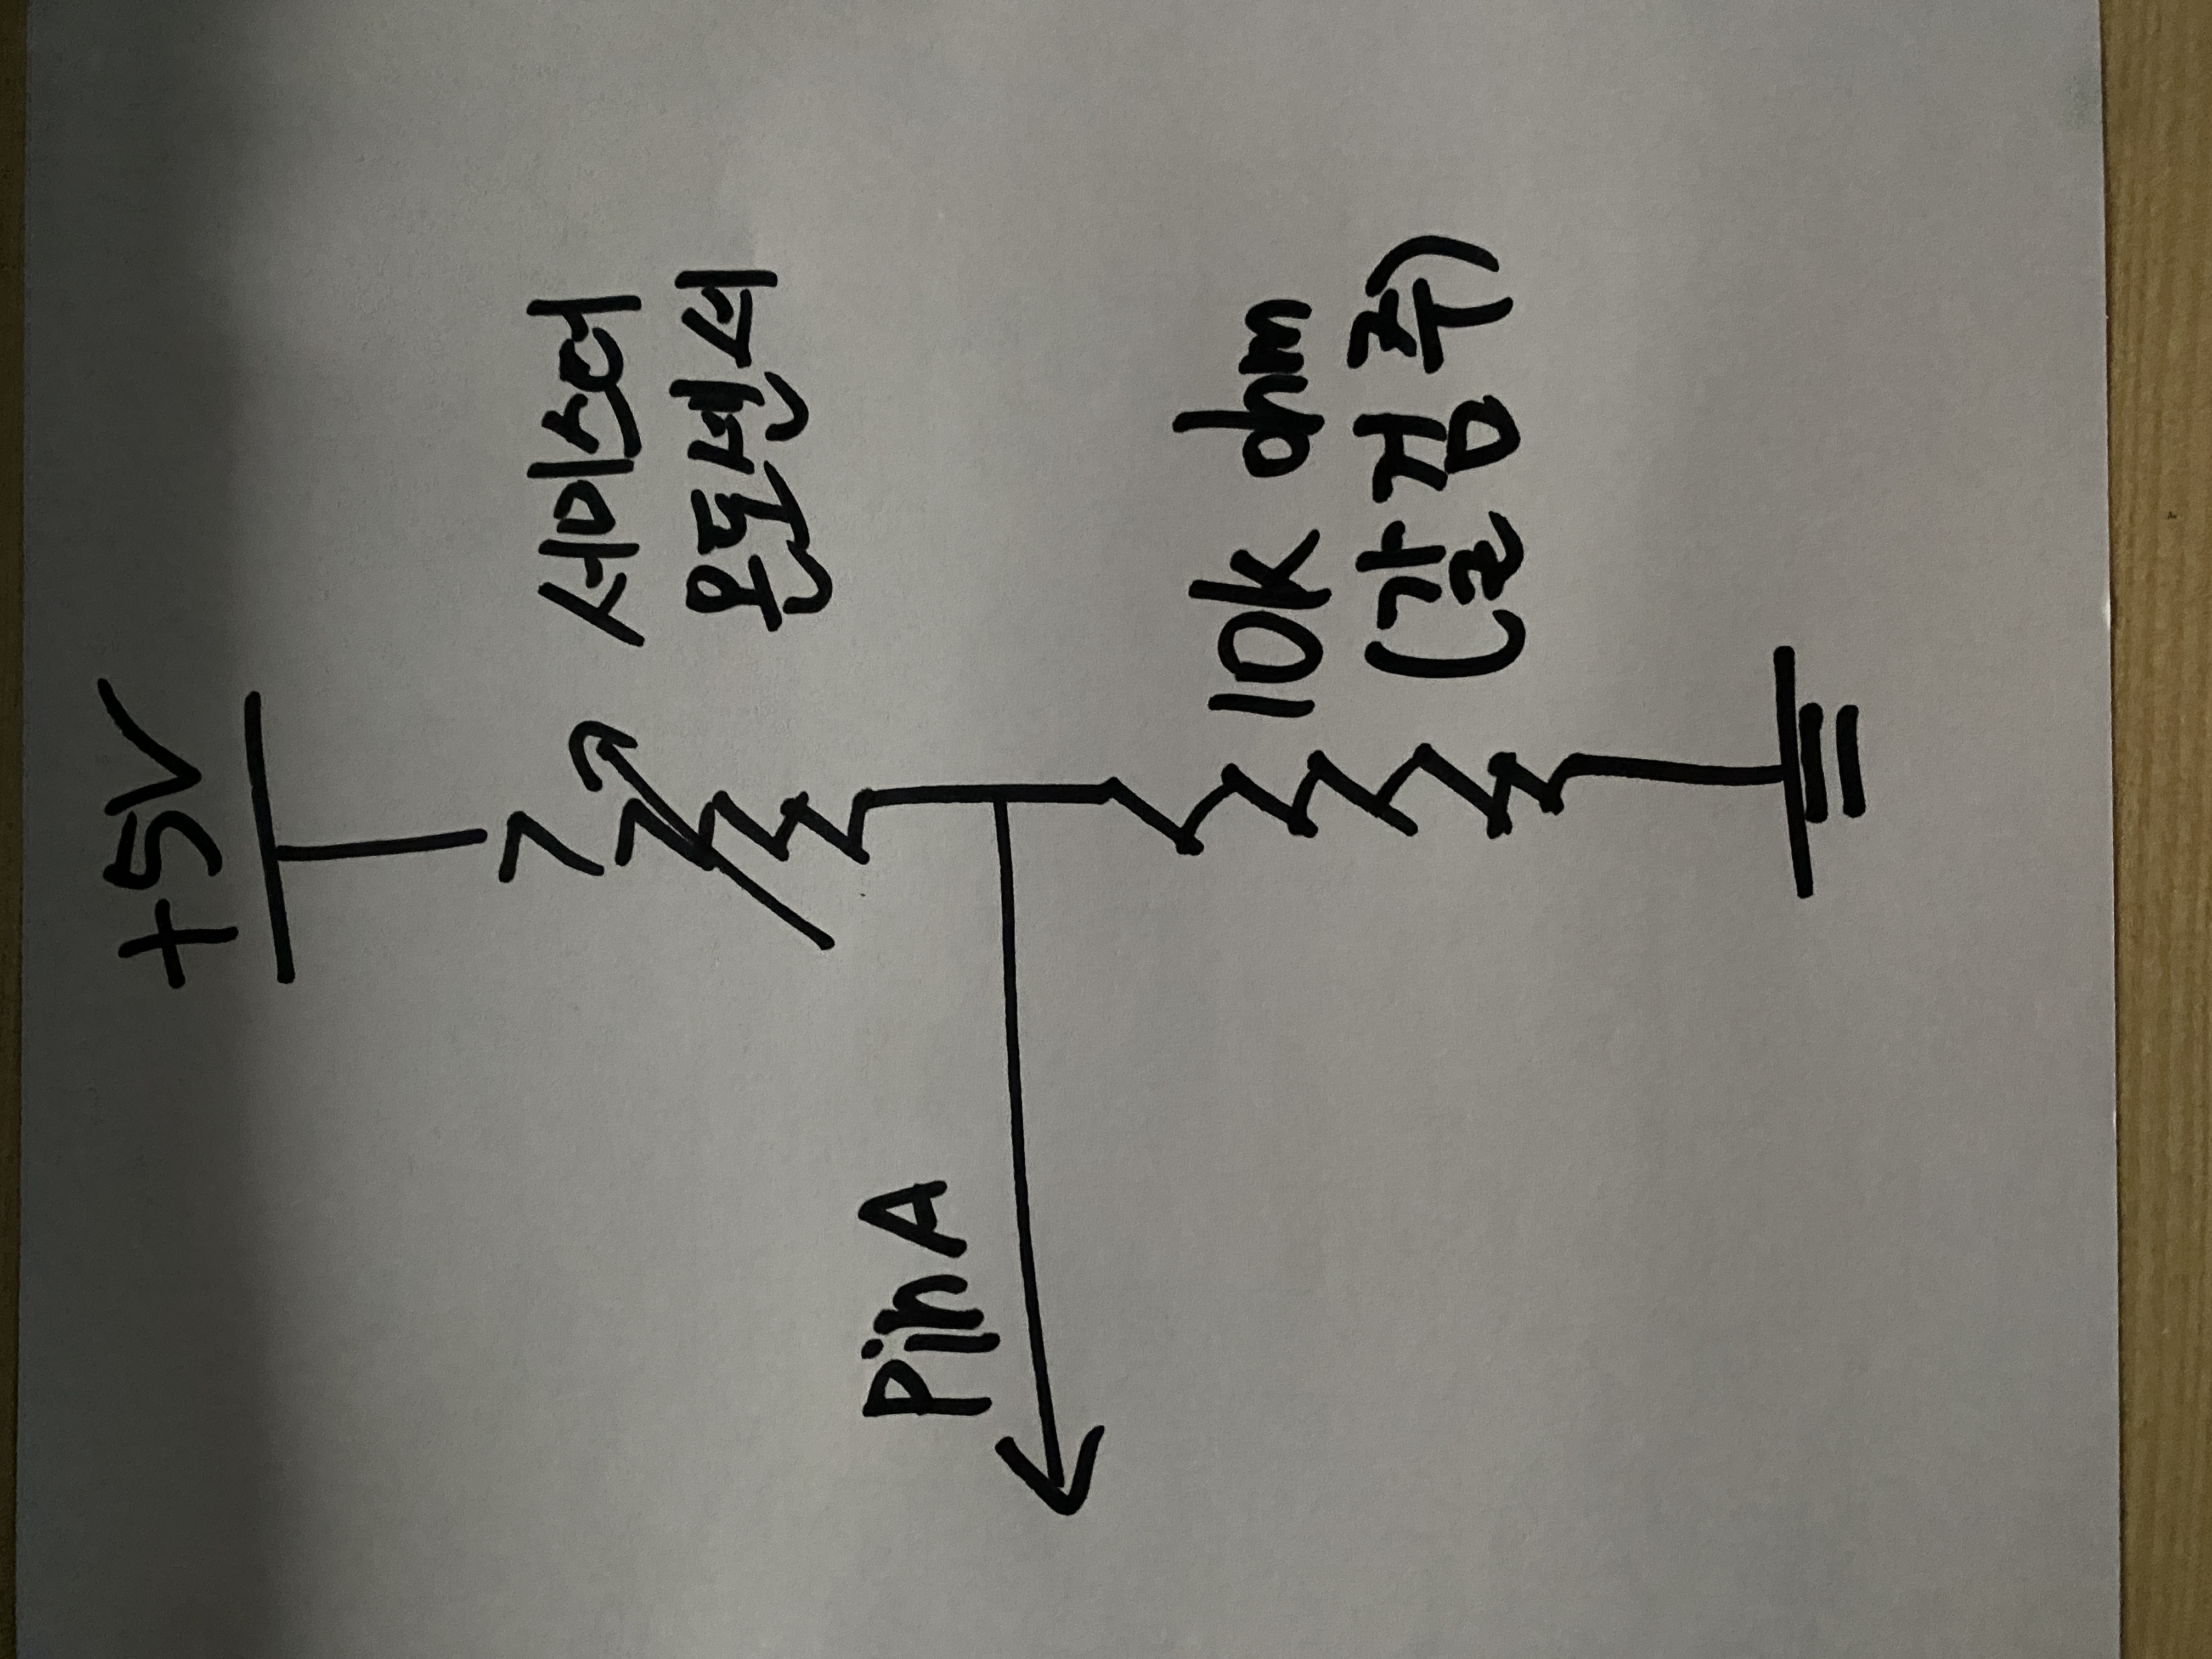 +5V
서미스터
온도센서
Pin A
10k ohm
(갈검주)